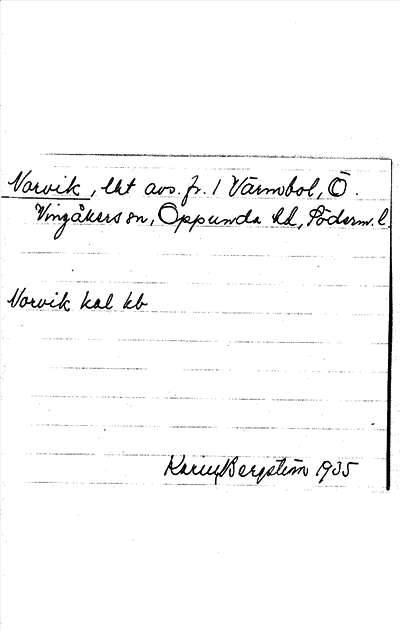 Norvik, lht avs. fr. 1 Värmbol, Ö.
Vingåkers sn, Oppunda hd, Söderm. l.
Norvik kal kb
Karin Bergström 1935